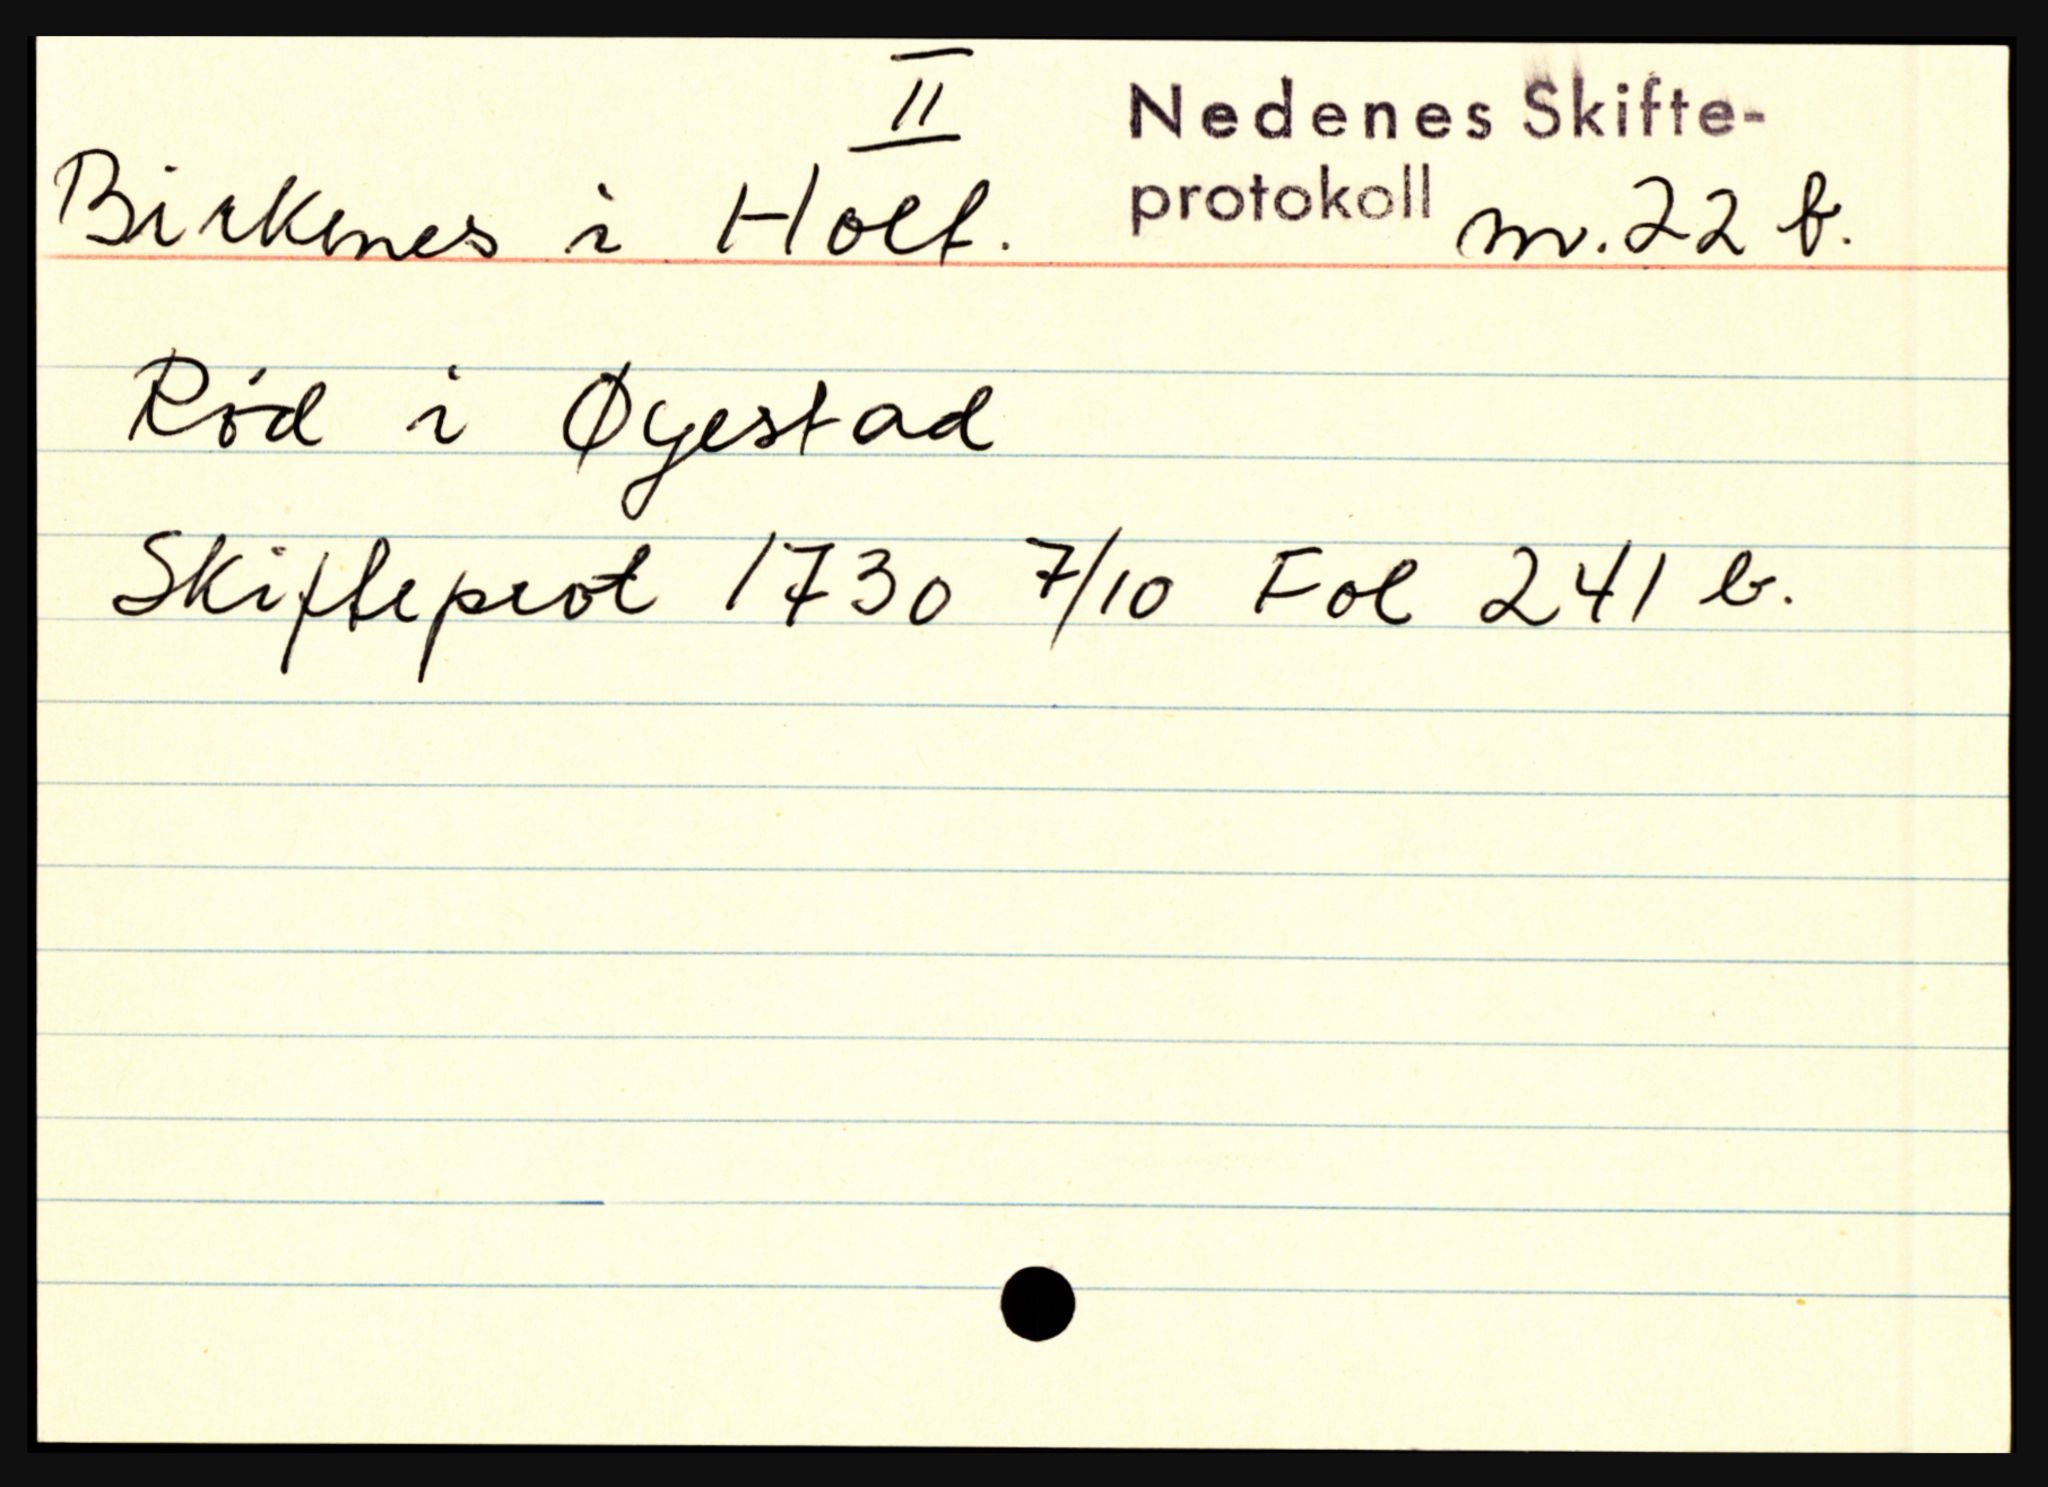 II
Nedenes Skifte-
Birkenes i Holt. protokoll nr. 22 b.
Rød i Øyestad
Skifteprot 1730 7/10 Fol 241 b.